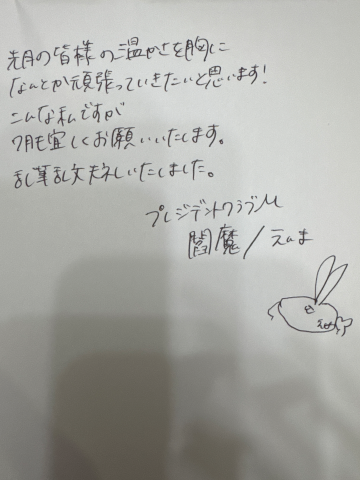 先月の皆様の温かさを胸に
なんとか頑張っていきたいと思います!
こんな私ですが
7月も宜しくお願いいたします。
乱筆乱文失礼いたしました。
プレジデントクラブM
閻魔/えんま